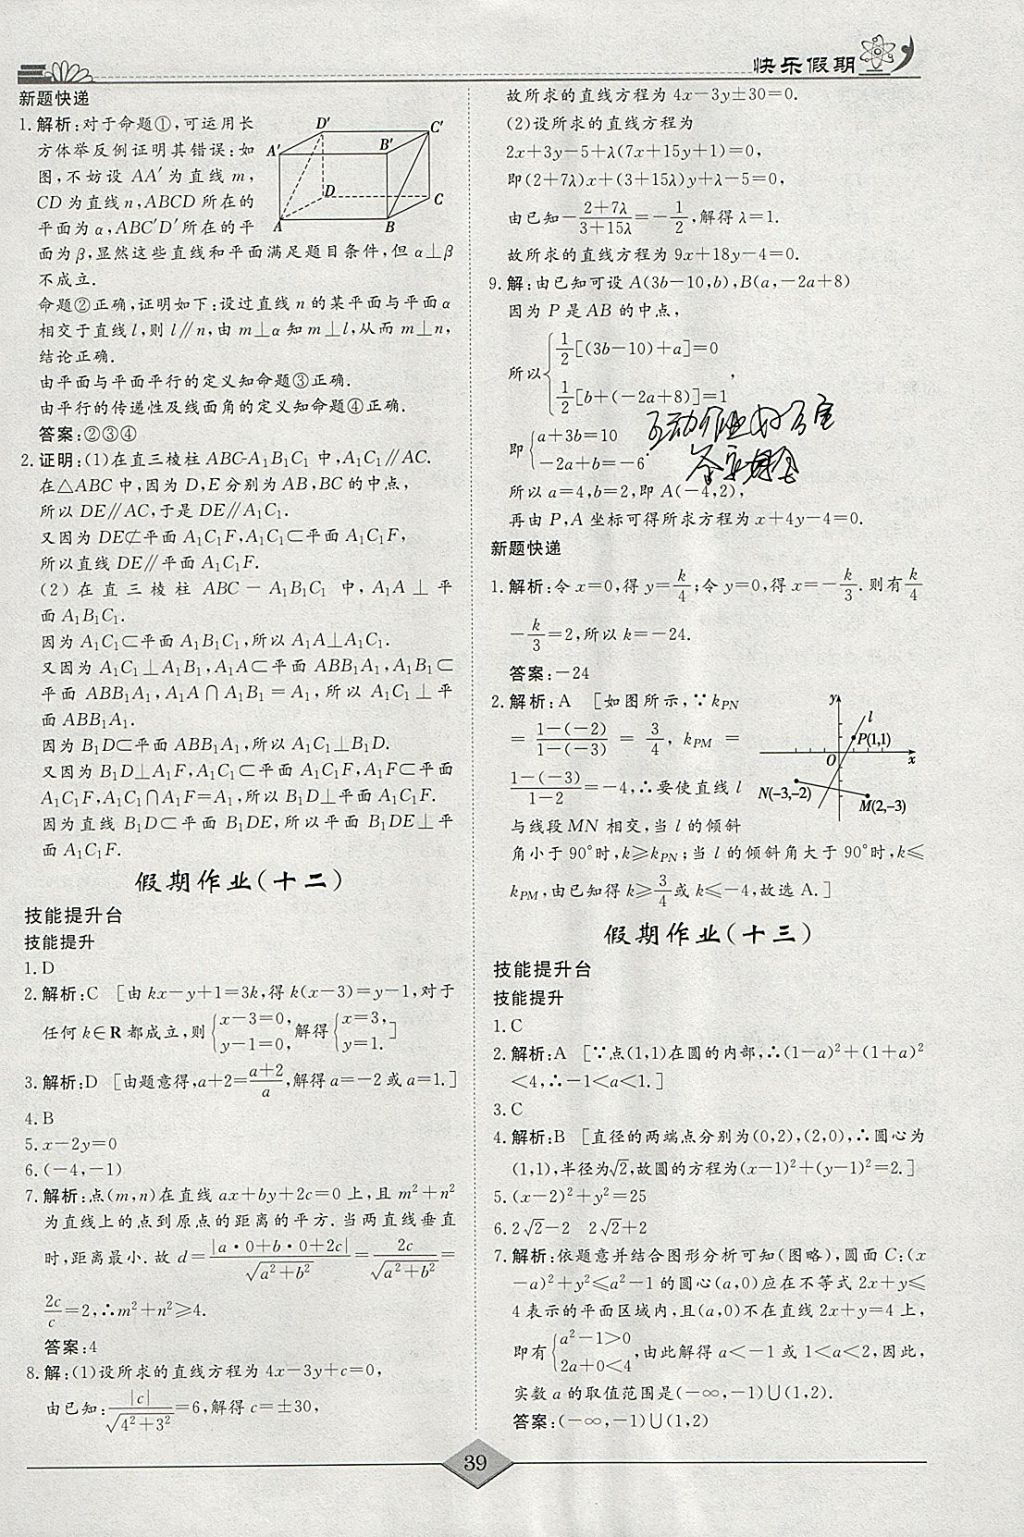 快乐假期
新题快递
1.解析:对于命题①,可运用长
方体举反例证明其错误:如
图,不妨设 AA′为直线 m,
CD 为直线 n,ABCD 所在的
平面为 α,ABC′D′所在的平
面为 β,显然这些直线和平面满足题目条件,但 α⊥β
不成立.
命题②正确,证明如下:设过直线 n 的某平面与平面 α
相交于直线 l,则 l∥n,由 m⊥α 知 m⊥l,从而 m⊥n,
结论正确.
由平面与平面平行的定义知命题③正确.
由平行的传递性及线面角的定义知命题④正确.
答案:②③④
A′ D′ B′ C′ A B C D
2.证明:(1)在直三棱柱 ABC-A₁B₁C₁ 中,A₁C₁∥AC.
在△ABC 中,因为 D,E 分别为 AB,BC 的中点,
所以 DE∥AC,于是 DE∥A₁C₁.
又因为 DE⊄平面 A₁C₁F,A₁C₁⊂平面 A₁C₁F,
所以直线 DE∥平面 A₁C₁F.
(2)在直三棱柱 ABC-A₁B₁C₁ 中,A₁A⊥平
面 A₁B₁C₁.
因为 A₁C₁⊂平面 A₁B₁C₁,所以 A₁A⊥A₁C₁.
又因为 A₁C₁⊥A₁B₁,A₁A⊂平面 ABB₁A₁,A₁B₁⊂
平面 ABB₁A₁,A₁A∩A₁B₁=A₁,所以 A₁C₁⊥平
面 ABB₁A₁.
因为 B₁D⊂平面 ABB₁A₁,所以 A₁C₁⊥B₁D.
又因为 B₁D⊥A₁F,A₁C₁⊂平面 A₁C₁F,A₁F⊂平面
A₁C₁F,A₁C₁∩A₁F=A₁,所以 B₁D⊥平面 A₁C₁F.
因为直线 B₁D⊂平面 B₁DE,所以平面 B₁DE⊥平
面 A₁C₁F.
假期作业(十二)
技能提升台
技能提升
1.D
2.解析:C [由 kx-y+1=3k,得 k(x-3)=y-1,对于
任何 k∈R 都成立,则{x-3=0, y-1=0,解得{x=3, y=1.]
3.解析:D [由题意得,a+2=(a+2)/a,解得 a=-2 或 a=1.]
4.B
5.x-2y=0
6.(-4,-1)
7.解析:点(m,n)在直线 ax+by+2c=0 上,且 m²+n²
为直线上的点到原点的距离的平方.当两直线垂直
时,距离最小.故 d=|a·0+b·0+2c|/√(a²+b²)=2c/√(a²+b²)=
2c/c=2,∴m²+n²≥4.
答案:4
8.解:(1)设所求的直线方程为 4x-3y+c=0,
由已知:|c|/√(4²+3²)=6,解得 c=±30,
故所求的直线方程为 4x-3y±30=0.
(2)设所求的直线方程为
2x+3y-5+λ(7x+15y+1)=0,
即(2+7λ)x+(3+15λ)y+λ-5=0,
由已知-(2+7λ)/(3+15λ)=-1/2,解得 λ=1.
故所求的直线方程为 9x+18y-4=0.
9.解:由已知可设 A(3b-10,b),B(a,-2a+8)
因为 P 是 AB 的中点,
所以{1/2[(3b-10)+a]=0
1/2[b+(-2a+8)]=1,
即{a+3b=10
-2a+b=-6.
互动作业
所以 a=4,b=2,即 A(-4,2),
再由 P,A 坐标可得所求方程为 x+4y-4=0.
新题快递
1.解析:令 x=0,得 y=k/4;令 y=0,得 x=-k/3.则有k/4
-k/3=2,所以 k=-24.
答案:-24
2.解析:A [如图所示,∵kPN
=(1-(-2))/(1-(-3))=3/4,kPM=
(1-(-3))/(1-2)=-4,∴要使直线 l
与线段 MN 相交,当 l 的倾斜
角小于 90°时,k≥kPN;当 l 的倾斜角大于 90°时,k≤
kPM,由已知得 k≥3/4或 k≤-4,故选 A.]
y l P(1,1) O x N(-3,-2) M(2,-3)
假期作业(十三)
技能提升台
技能提升
1.C
2.解析:A [∵点(1,1)在圆的内部,∴(1-a)²+(1+a)²
<4,∴-1<a<1.]
3.C
4.解析:B [直径的两端点分别为(0,2),(2,0),∴圆心为
(1,1),半径为√2,故圆的方程为(x-1)²+(y-1)²=2.]
5.(x-2)²+y²=25
6.2√2-2 2√2+2
7.解析:依题意并结合图形分析可知(图略),圆面 C:(x
-a)²+y²≤a²-1 的圆心(a,0)应在不等式 2x+y≤
4 表示的平面区域内,且(a,0)不在直线 2x+y=4 上,
即有{a²-1>0 2a+0<4,由此解得 a<-1 或 1<a<2,因此,
实数 a 的取值范围是(-∞,-1)∪(1,2).
答案:(-∞,-1)∪(1,2)
39